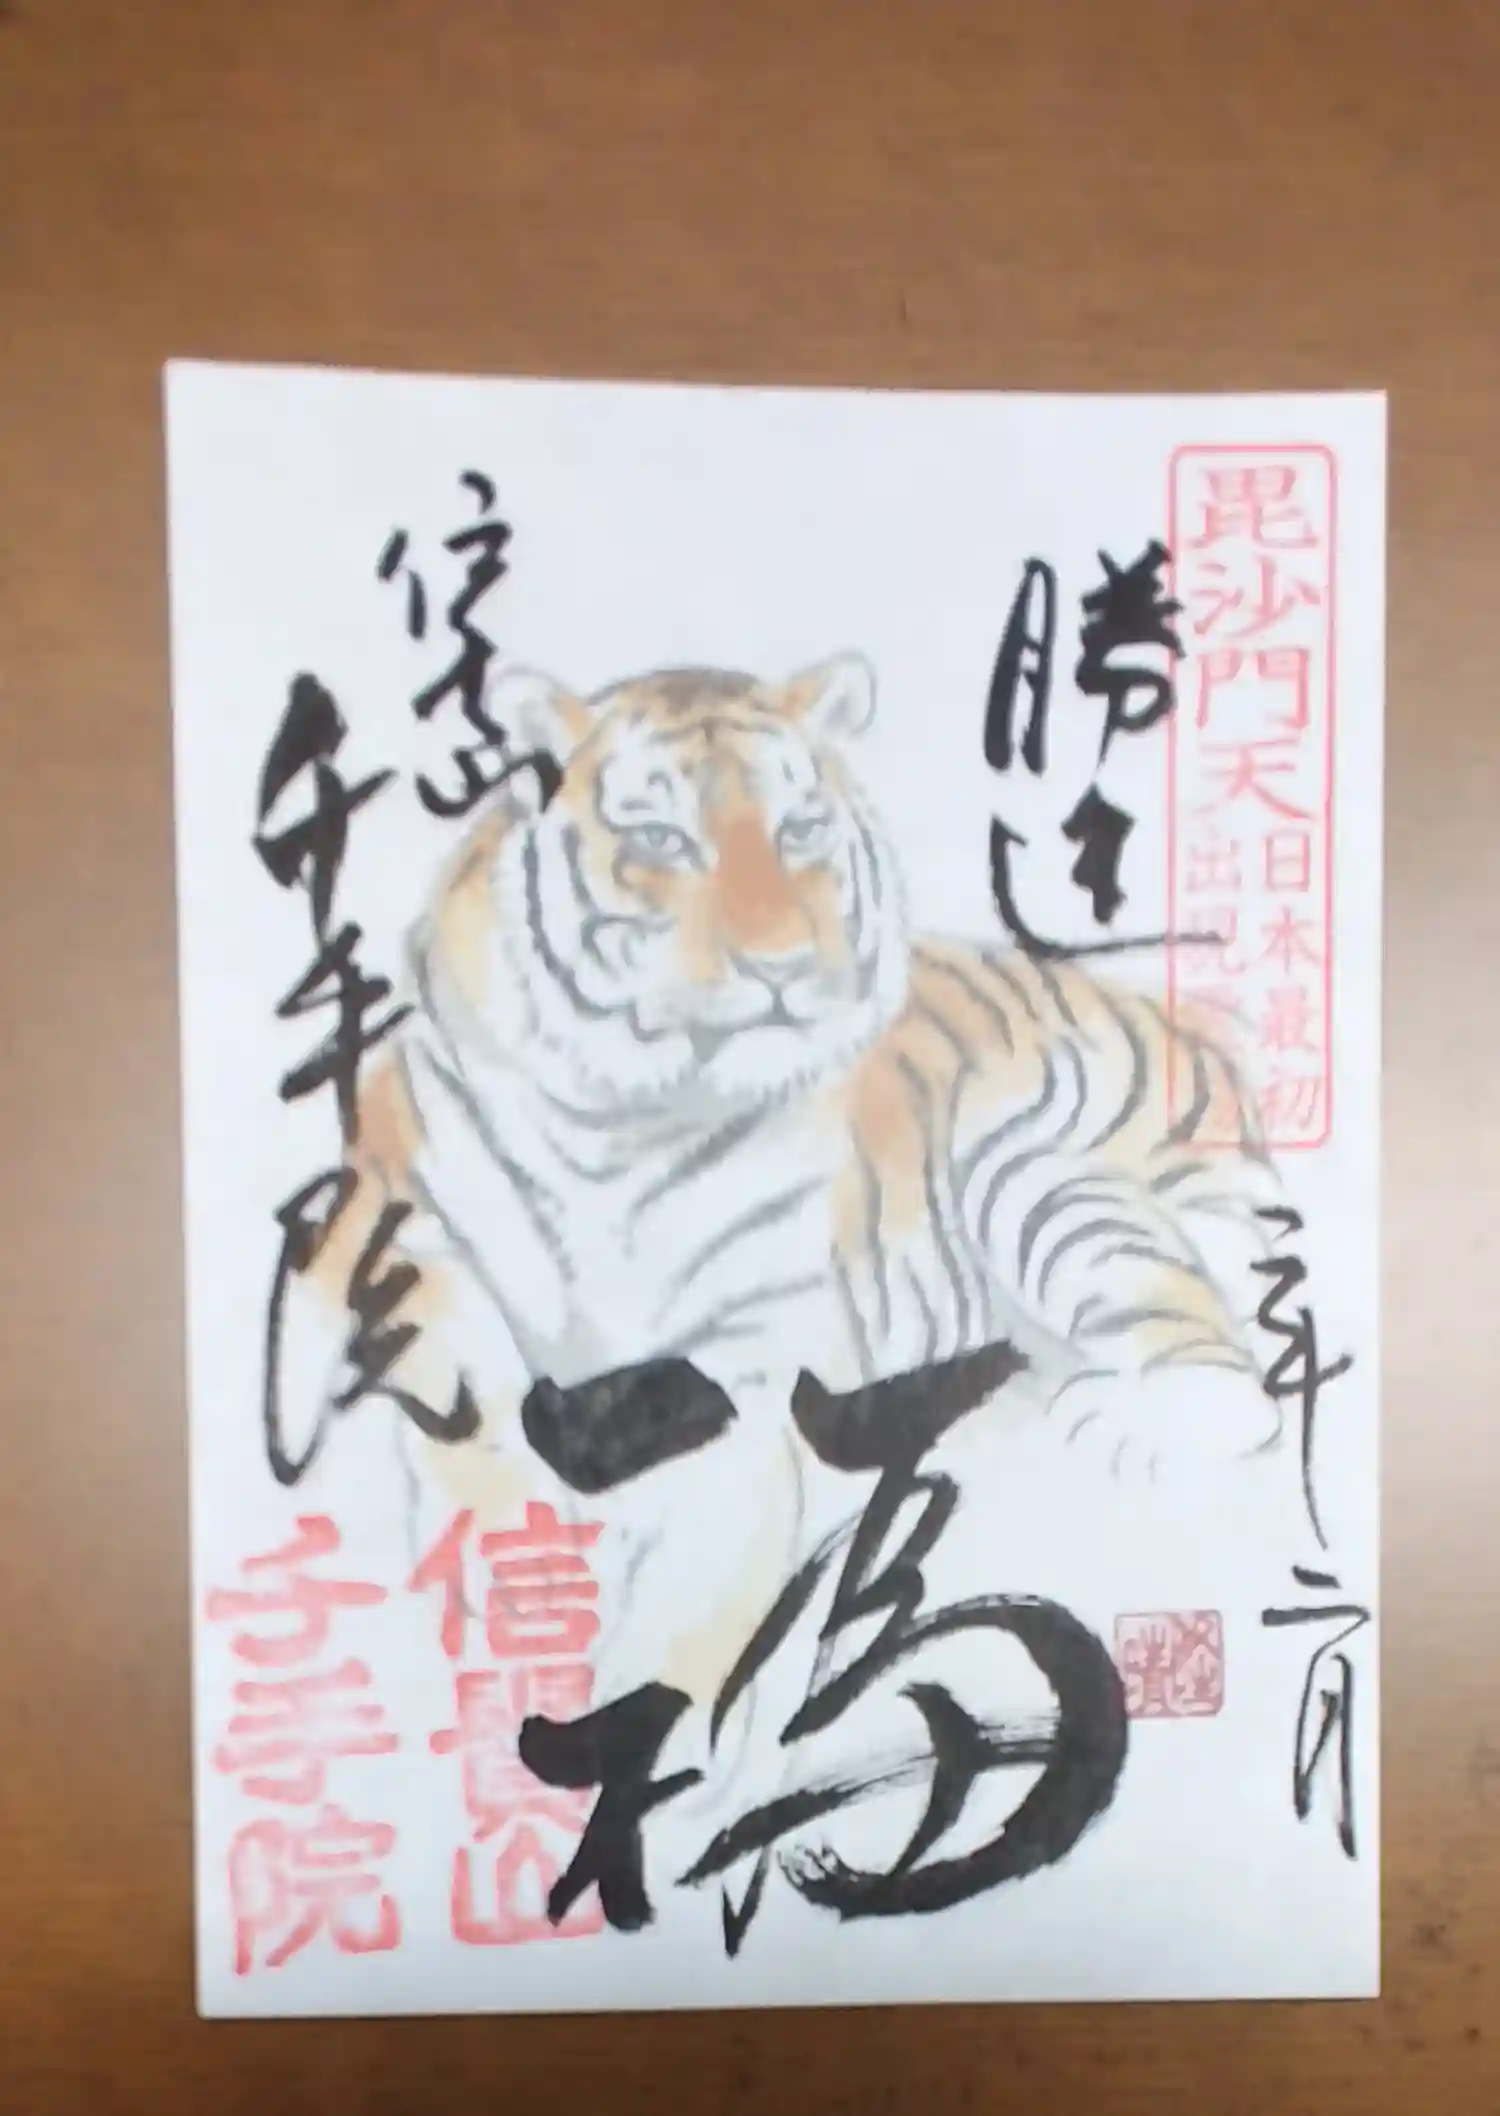 毘沙門天
日本最初
出現
勝運
三年二月
福
信貴山
千手院
信貴山
千手院